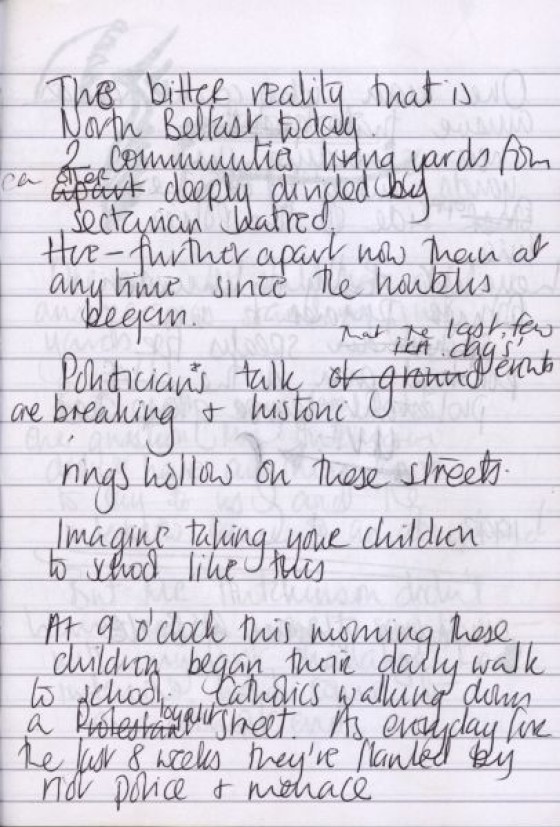 The bitter reality that is
North Belfast today.
2 communities living yards from
ea other
apart deeply divided by
sectarian hatred.
Here - further apart now than at
anytime since the troubles
began.
that the last few
days'
Politician's talk of ground events
are breaking + historic
rings hollow on these streets.
Imagine taking your children
to school like this
At 9 o'clock this morning these
children began their daily walk
to school. Catholics walking down
a Protestant street. As everyday for
the last 8 weeks they're flanked by
riot police + menace